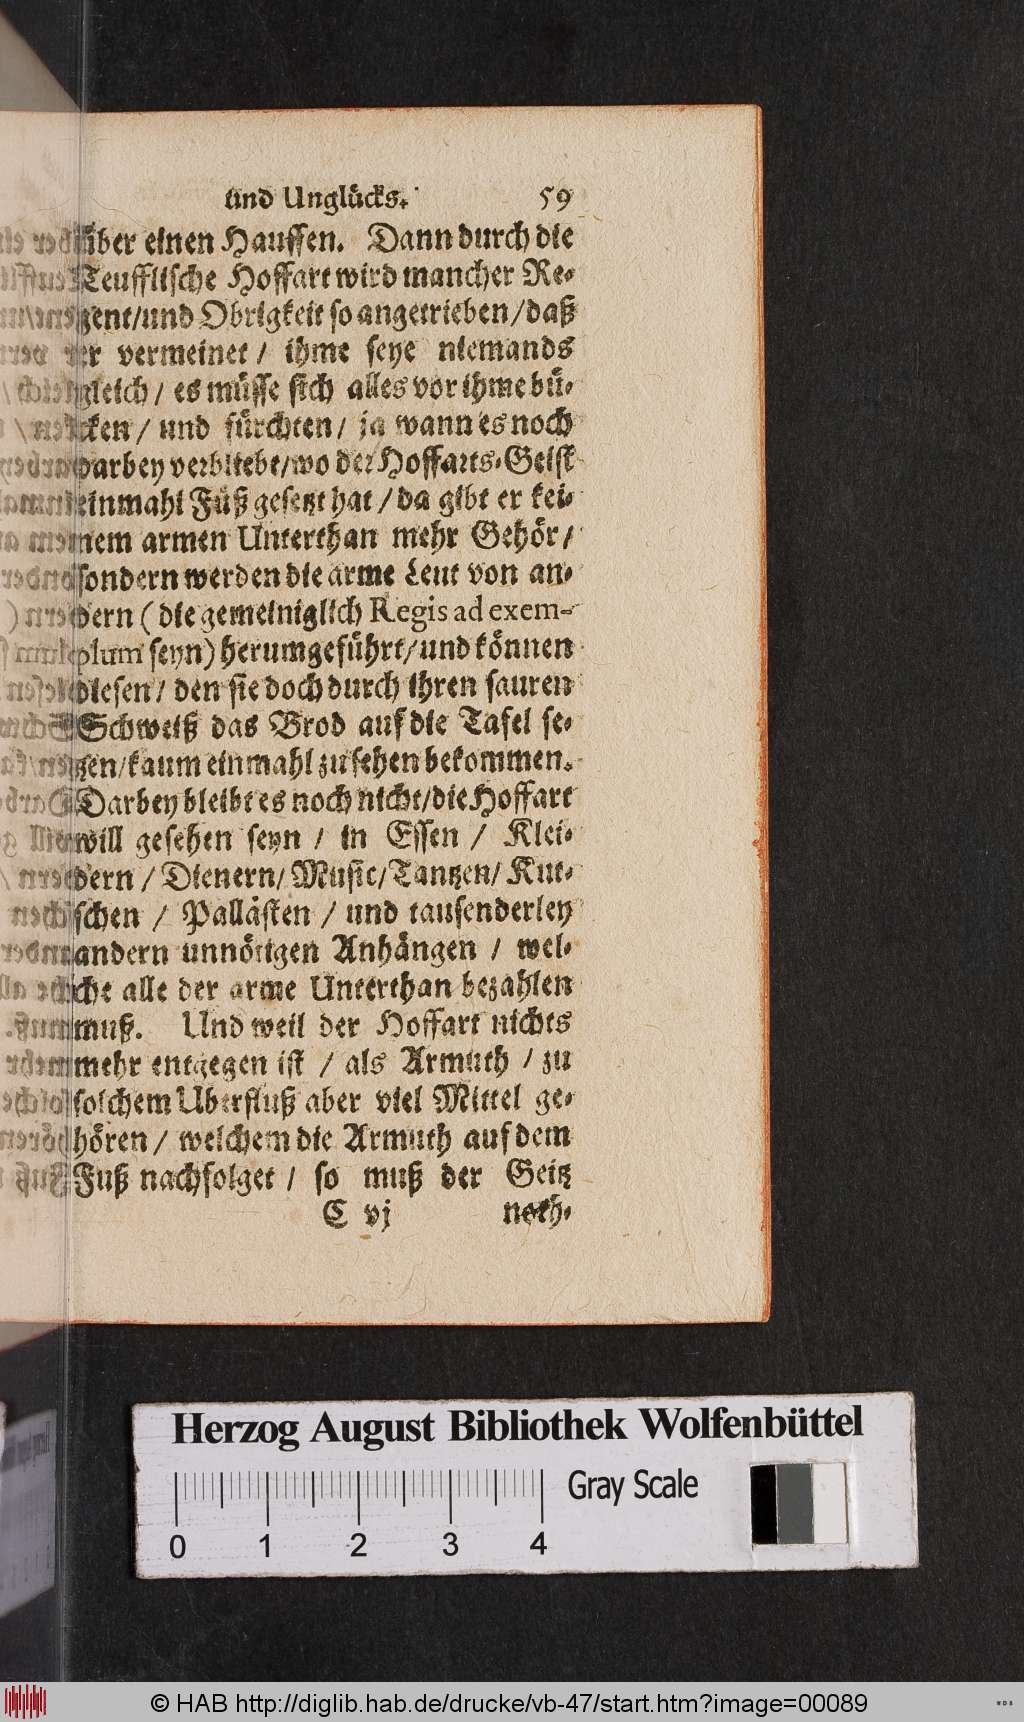 und Unglücks. 59
über einen Hauffen. Dann durch die
Teufflische Hoffart wird mancher Re-
gent/und Obrigkeit so angetrieben/daß
er vermeinet/ ihme seye niemands
gleich/ es müsse sich alles vor ihme bü-
cken/ und fürchten/ ja wann es noch
darbey verbliebe/wo der Hoffarts-Geist
einmahl Fuß gesetzt hat/da gibt er kei-
nem armen Unterthan mehr Gehör/
sondern werden die arme Leut von an-
dern (die gemeiniglich Regis ad exem-
plum seyn) herumgeführt/und können
diesen/ den sie doch durch ihren sauren
Schweiß das Brod auf die Tafel se-
tzen/kaum einmahl zu sehen bekommen.
Darbey bleibt es noch nicht/die Hoffart
will gesehen seyn/ in Essen/ Klei-
dern/ Dienern/ Music/Tantzen/ Kut-
schen/ Pallästen/ und tausenderley
andern unnötigen Anhängen/ wel-
che alle der arme Unterthan bezahlen
muß. Und weil der Hoffart nichts
mehr entgegen ist/ als Armuth/ zu
solchem Uberfluß aber viel Mittel ge-
hören/ welchem die Armuth auf dem
Fuß nachfolget/ so muß der Geitz
C vj noth-
Herzog August Bibliothek Wolfenbüttel
Gray Scale
0 1 2 3 4
© HAB http://diglib.hab.de/drucke/vb-47/start.htm?image=00089